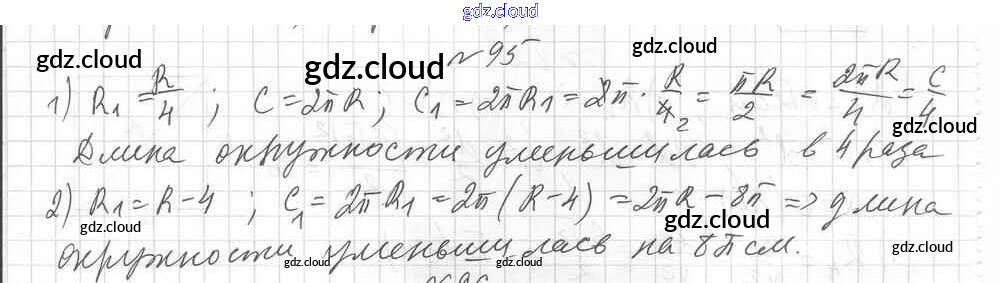 gdz.cloud
№ 95
gdz.cloud gdz.cloud gdz.cloud
1) R₁ = R/4 ; C = 2πR; C₁ = 2πR₁ = 2π · R/4₂ = πR/2 = 2πR/4 = C/4
gdz.cloud
Длина окружности уменьшилась в 4 раза
2) R₁ = R - 4 ; C₁ = 2πR₁ = 2π(R - 4) = 2πR - 8π => длина
gdz.cloud gdz.cloud
окружности уменьшилась на 8π см.
gdz.cloud gdz.cloud gdz.cloud